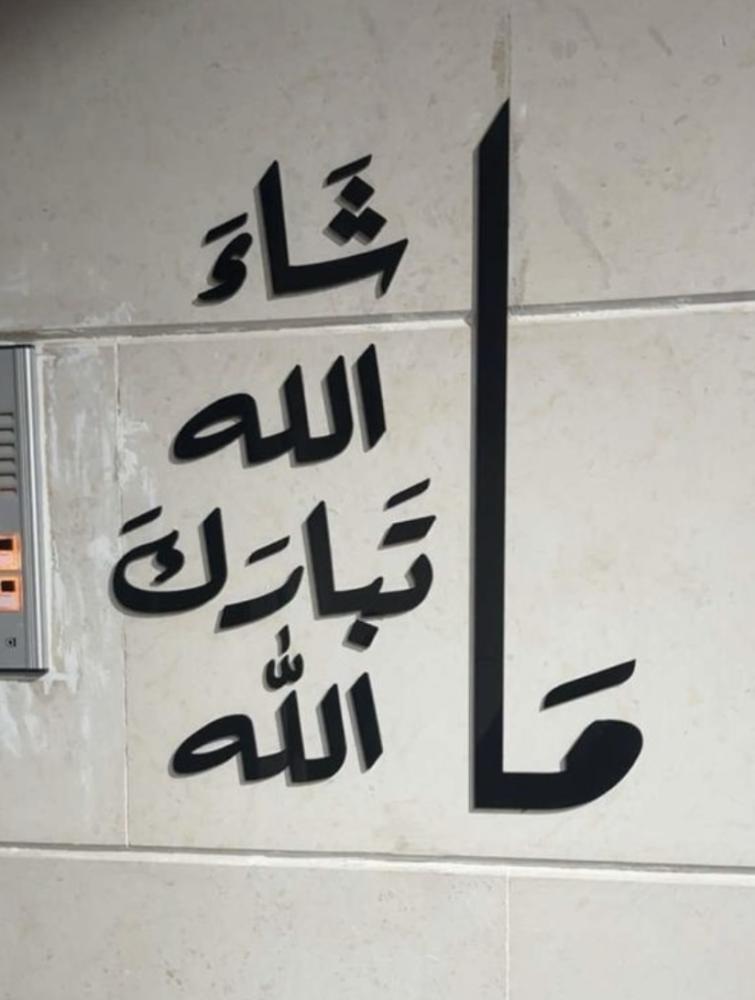 مَا
شَاءَ
الله
تَبارَكَ
اللّٰه